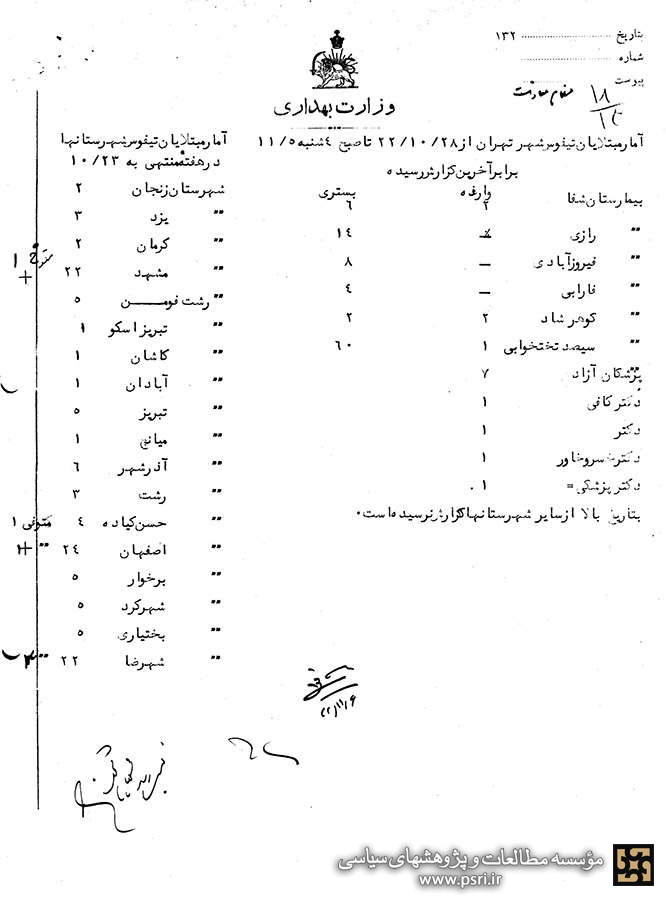 بتاریخ ........................ ۱۳۲
شماره ........................
پیوست
۱۸
وزارت بهداری
آمار مبتلایان تیفوس شهر تهران از ۲۲/۱۰/۲۸ تا صبح ۴ شنبه ۱۱/۵
برابر آخرین گزارش رسیده
وارده بستری
بیمارستان شفا ۲ ۶
" رازی ۱۴
" فیروزآبادی — ۸
" فارابی — ۴
" کوهرشاد ۲ ۲
" سیصد تختخوابی ۱ ۶۰
پزشکان آزاد ۷
دکتر کافی ۱
دکتر ۱
دکتر خسروخاور ۱
دکتر پزشکی = ۱.
بتاریخ بالا از سایر شهرستانها گزارش نرسیده است۰
آمار مبتلایان تیفوس شهرستانها
در هفته منتهی به ۱۰/۲۳
شهرستان زنجان ۲
" یزد ۳
" کرمان ۲
" مشهد ۲۲ ۱
" رشت فومن ۵
" تبریز اسکو ۱
" کاشان ۱
" آبادان ۱
" تبریز ۵
" میانه ۱
" آذرشهر ۶
" رشت ۳
" حسن کیاده ۴ متوفی ۱
" اصفهان ۲۴ "
" برخوار ۵
" شهرکرد ۵
" بختیاری ۵
" شهرضا ۲۲ "
۲۲/۱۱/۶
مؤسسه مطالعات و پژوهشهای سیاسی
www.psri.ir